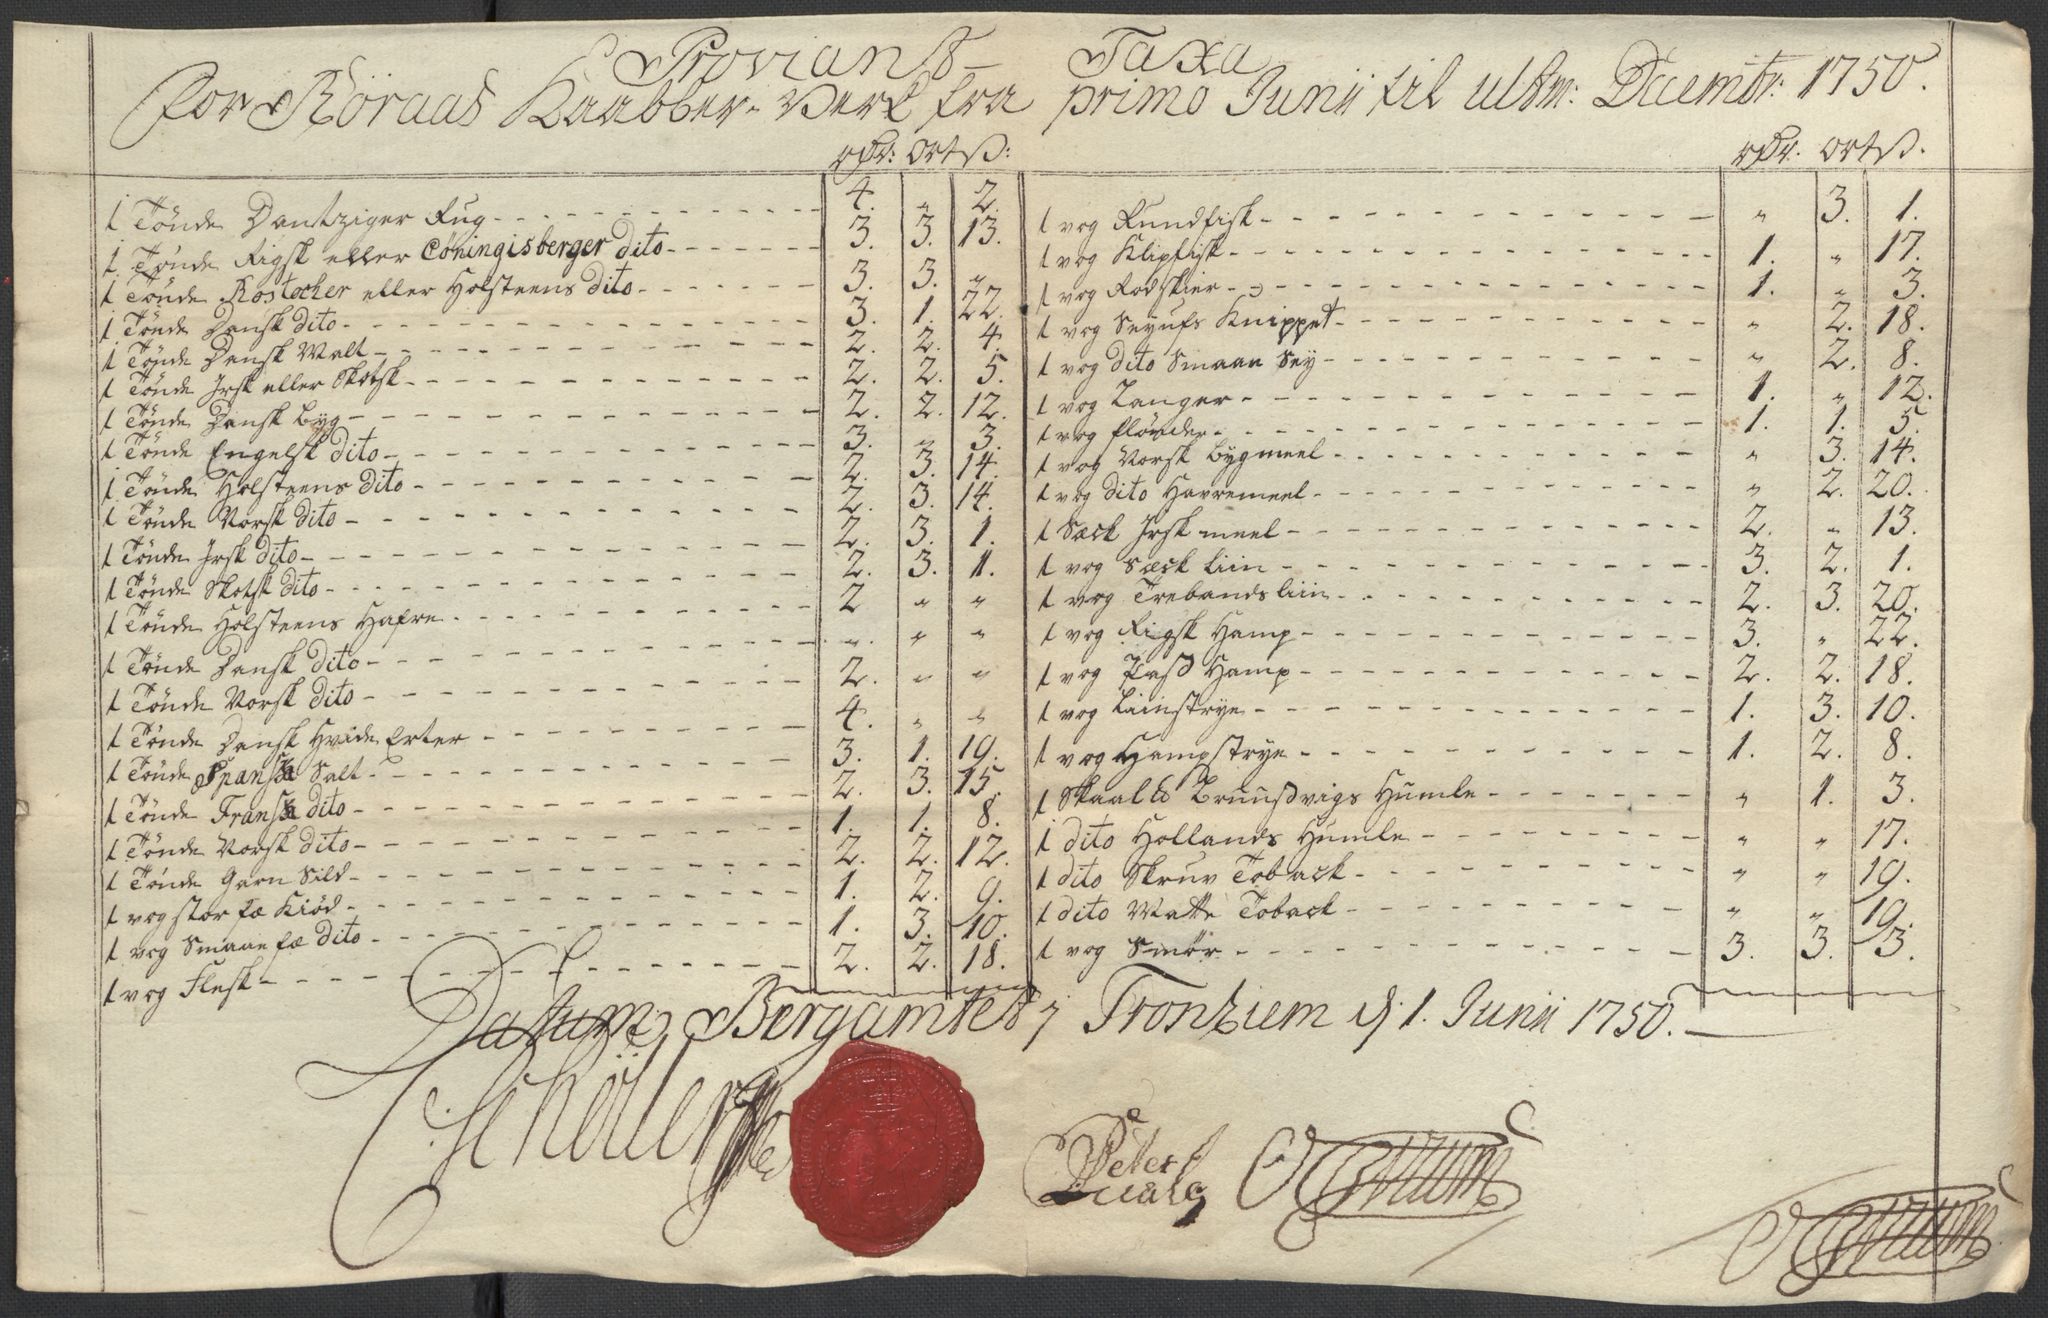 Proviant Taxa
for Röraas Kaabber-Verk fra primo Junii til ultm: Decembr: 1750.
rdr: ort ß:
1 Tönde Dantziger Rug 4. " 2.
1 Tönde Rigsk eller Cöningisberger dito 3. 3. 13.
1 Tönde Rostocker eller Holsteens dito 3. 3. "
1 Tönde Dansk dito 3. 1. 22.
1 Tönde Dansk Malt 2. 2. 4.
1 Tönde Irsk eller Skotsk 2. 2. 5.
1 Tönde Dansk Byg 2. 2. 12.
1 Tönde Engelsk dito 3. " 3.
1 Tönde Holsteens dito 2. 3. 14.
1 Tönde Norsk dito 2. 3. 14.
1 Tönde Irsk dito 2. 3. 1.
1 Tönde Skotsk dito 2. 3. 1.
1 Tönde Holsteens Hafre 2 " "
1 Tönde Dansk dito " " "
1 Tönde Norsk dito 2. " "
1 Tönde Dansk Hvide Erter 4. " "
1 Tönde Spansk Salt 3. 1. 19.
1 Tönde Fransk dito 2. 3. 15.
1 Tönde Norsk dito 1. 1. 8.
1 Tönde Garn Sild 2. 2. 12.
1 vog stor fæ Kiöd 1. 2. 9.
1 vog Smaae fæ dito 1. 3. 10.
1 vog Flesk 2. 2. 18.
rdr. ort ß.
1 vog Rundfisk " 3. 1.
1 vog Klipfisk 1. " 17.
1 vog Rodskier 1. " 3.
1 vog Seyufs Knippet " 2. 18.
1 vog dito Smaae Sey " 2. 8.
1 vog Langer 1. " 12.
1 vog flönder 1. 1. 5.
1 vog Norsk bygmeel " 3. 14.
1 vog dito Havremeel " 2. 20.
1 Sæck Irsk meel 2. " 13.
1 vog Sæck Liin 3. 2. 1.
1 vog Trebands liin 2. 3. 20.
1 vog Rigsk Hamp 3. " 22.
1 vog Pass Hamp 2. 2. 18.
1 vog Liinstrye 1. 3. 10.
1 vog Hampstrye 1. 2. 8.
1 Skaal℔ Brunsvigs Humle " 1. 3.
1 dito Hollands Humle " " 17.
1 dito Skruv Toback " " 19.
1 dito Matte Toback " " 19.
1 vog Smör 3. 3. 3.
Datum Bergamtet i Tronhiem d: 1. Junii 1750.
C. Schöller
Peter